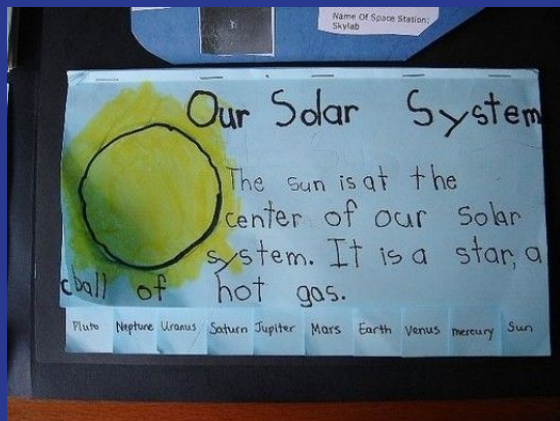 Name Of Space Station:
Skylab
Our Solar System
The sun is at the
center of our solar
system. It is a star, a
ball of hot gas.
Pluto Neptune Uranus Saturn Jupiter Mars Earth Venus mercury Sun